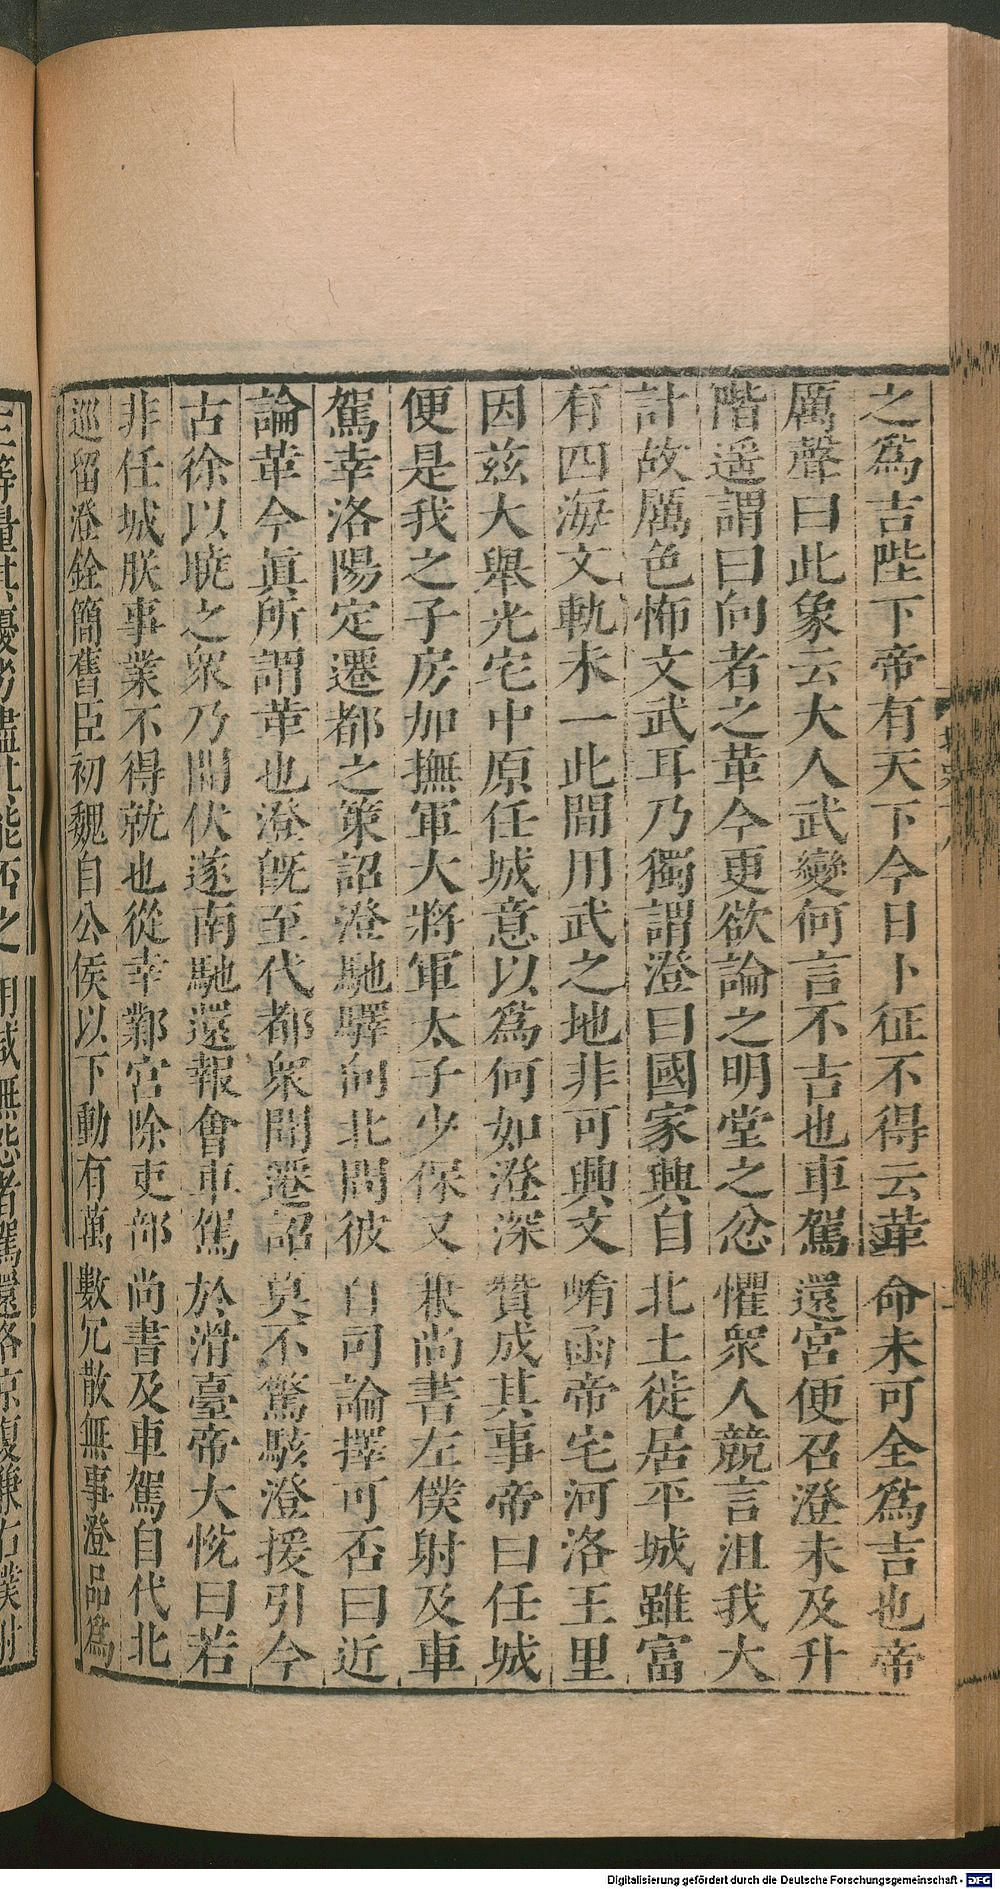 之爲吉陛下帝有天下今日卜征不得云革命未可全爲吉也帝
厲聲曰此象云大人武變何言不吉也車駕還宮便召澄未及升
階遥謂曰向者之革今更欲論之明堂之忿懼衆人競言沮我大
計故厲色怖文武耳乃獨謂澄曰國家興自北土徙居平城雖富
有四海文軌未一此間用武之地非可興文崤函帝宅河洛王里
因茲大舉光宅中原任城意以爲何如澄深贊成其事帝曰任城
便是我之子房加撫軍大將軍太子少保又兼尚書左僕射及車
駕幸洛陽定遷都之策詔澄馳驛向北問彼百司論擇可否曰近
論革今眞所謂革也澄旣至代都衆聞遷詔莫不驚駭澄援引今
古徐以曉之衆乃開伏遂南馳還報會車駕於滑臺帝大悅曰若
非任城朕事業不得就也從幸鄴宮除吏部尚書及車駕自代北
巡留澄銓簡舊臣初魏自公侯以下動有萬數冗散無事澄品爲
三等量其優劣盡其能否之用咸無怨者駕還洛京復兼右僕射
Digitalisierung gefördert durch die Deutsche Forschungsgemeinschaft - DFG